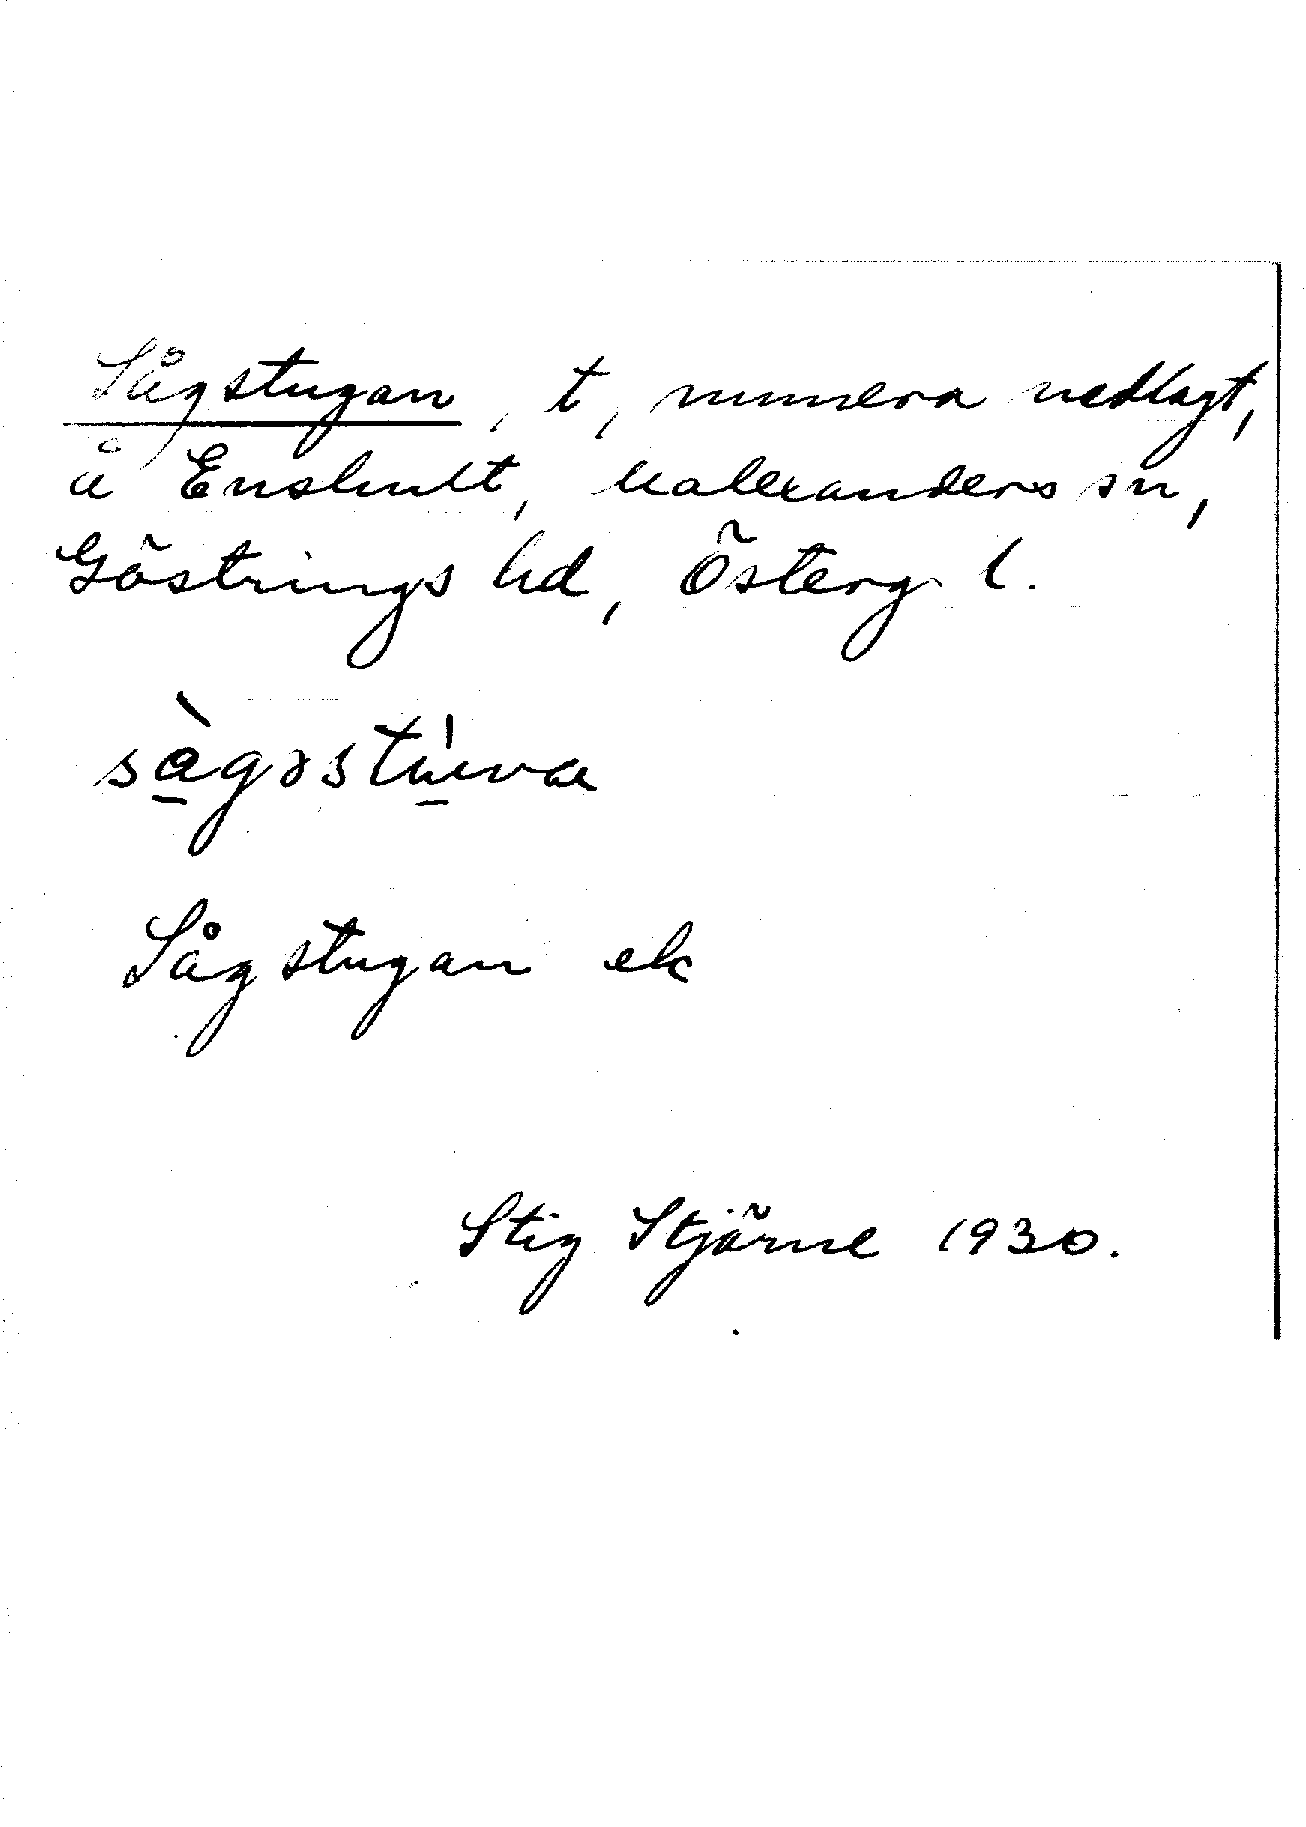 Sågstugan, t, numera nedlagt,
å Enshult, Malexanders sn,
Göstrings hd, Österg l.
sàgəstúwa
Sågstugan ek
Stig Stjärne 1930.